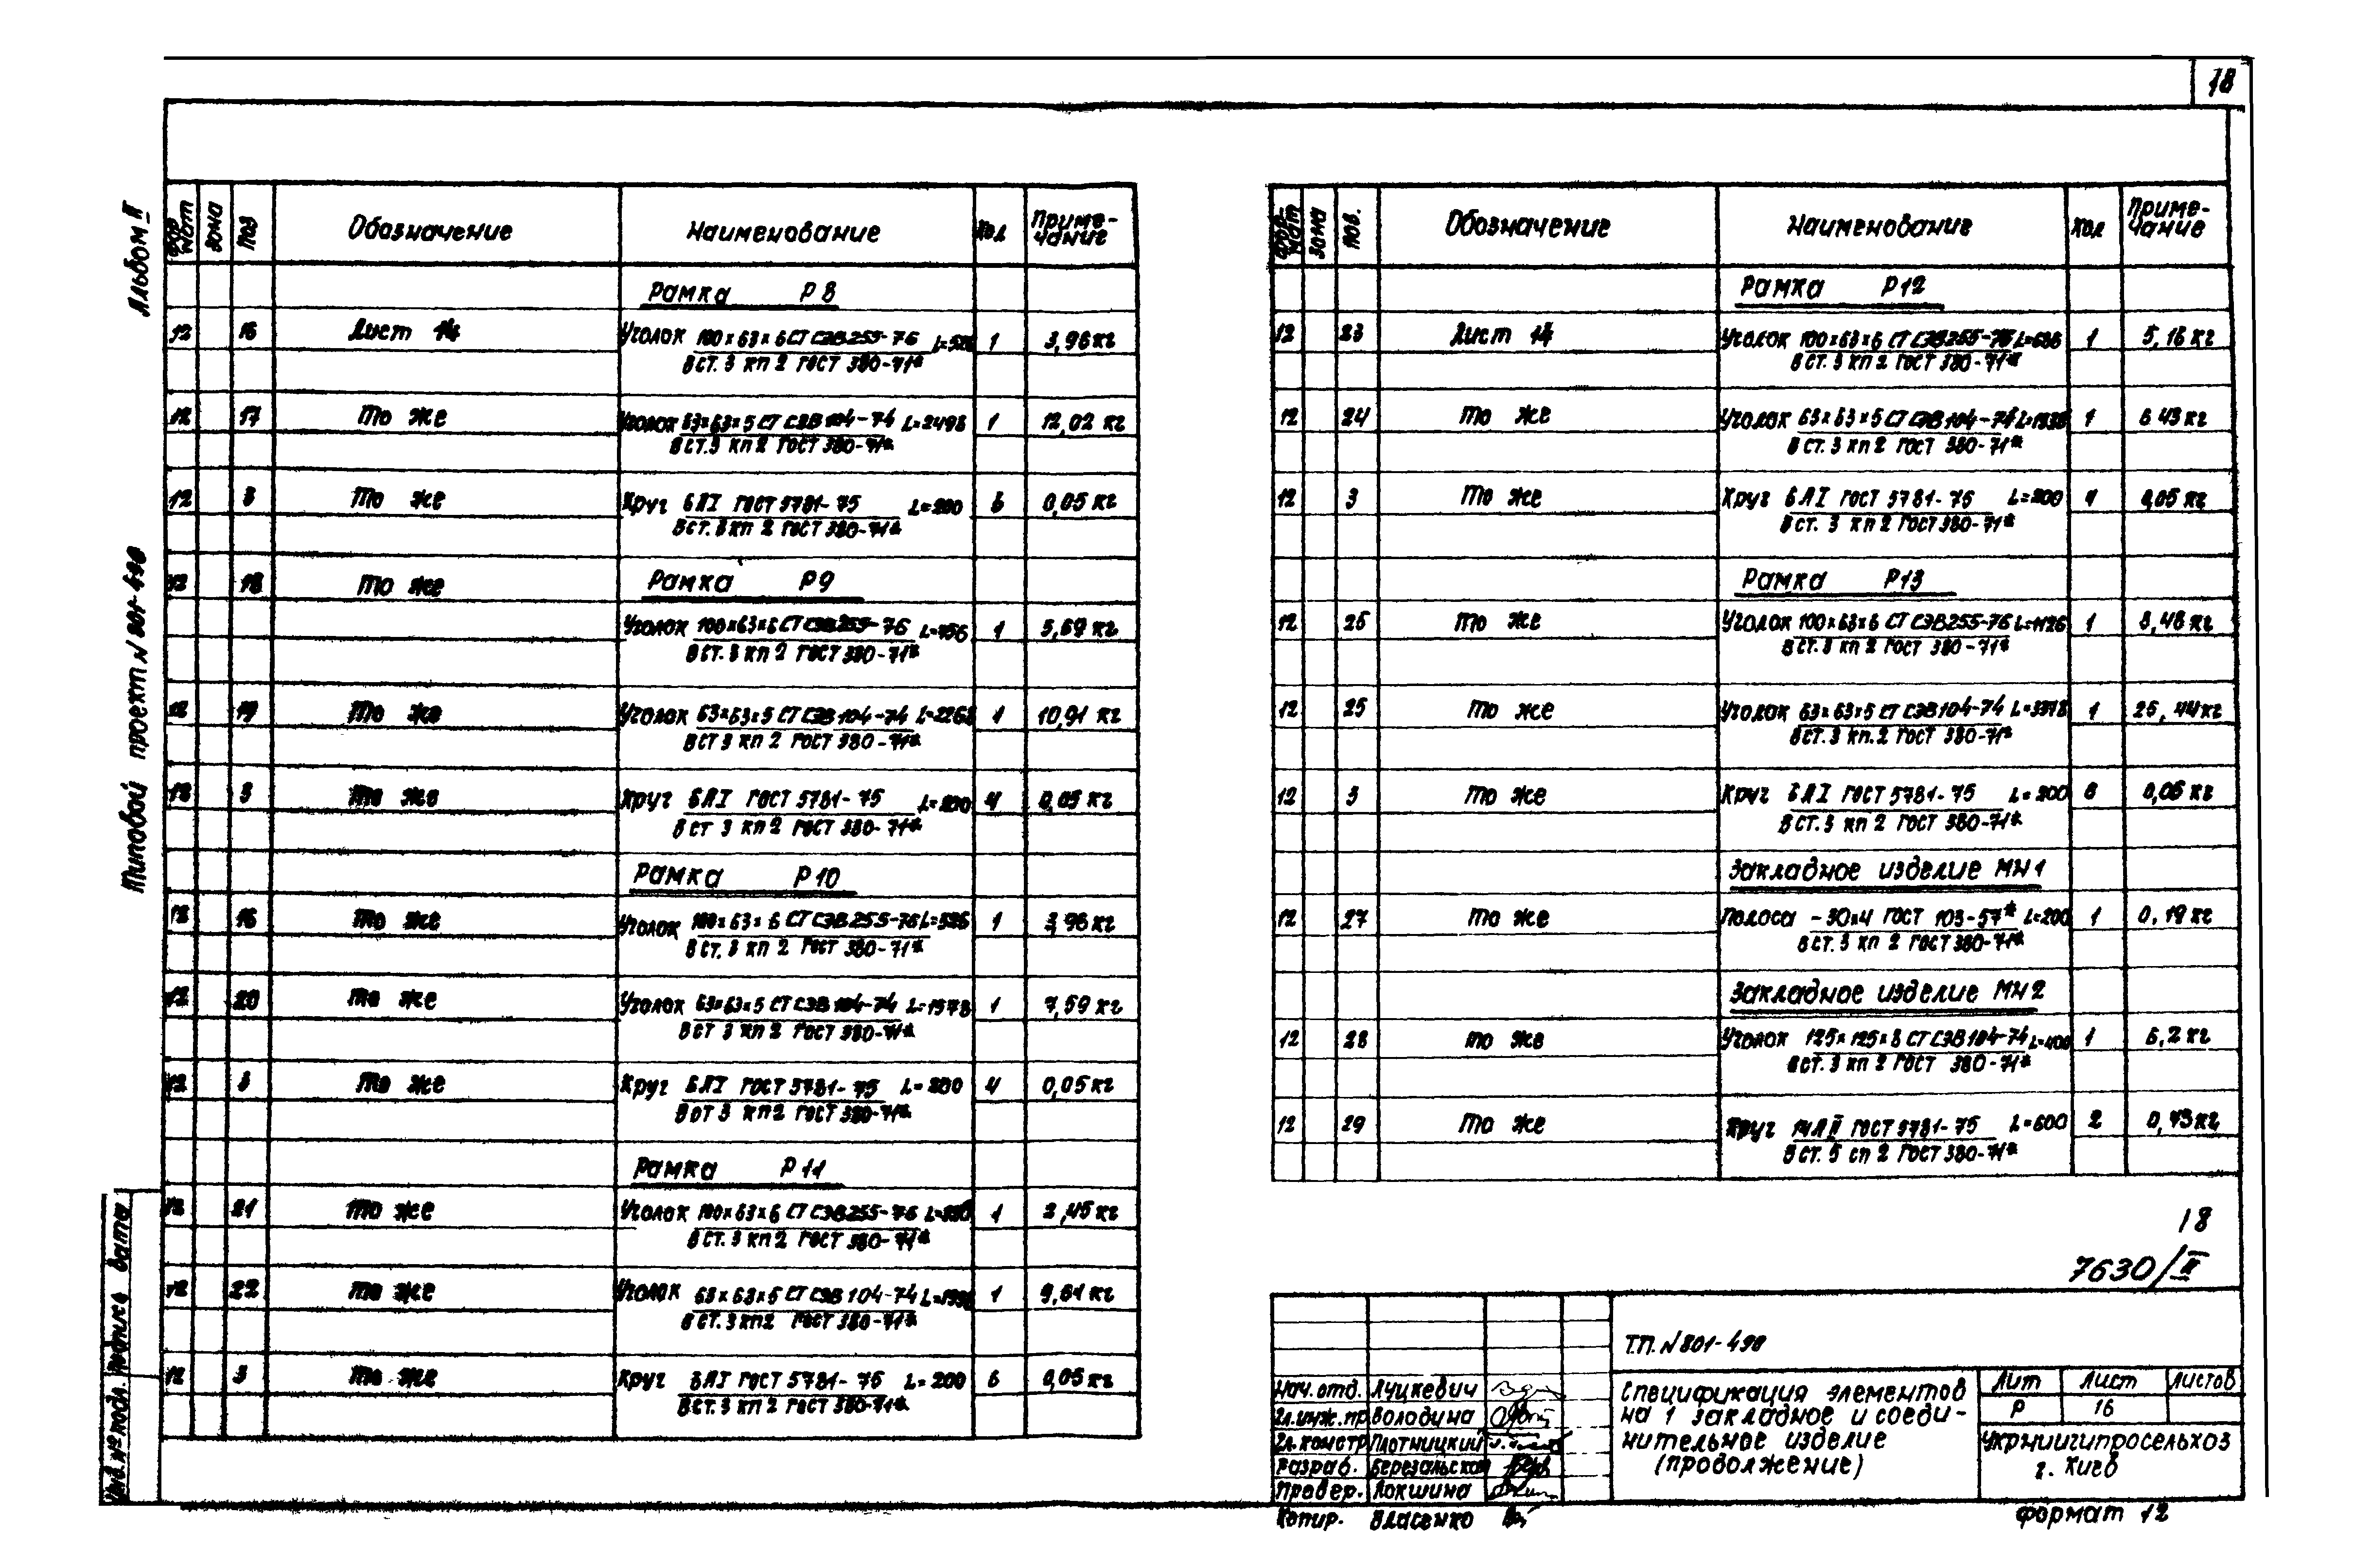 18
Альбом II
Типовой проект N 801-490
Инв. № подл. Подпись дата
Формат Зона Поз Обозначение Наименование Кол Примечание
Рамка Р8
12 16 Лист 14 Уголок 100×63×6 СТ СЭВ 255-76 1 3,96 кг
В СТ. 3 кп 2 ГОСТ 380-71*
12 17 То же Уголок 63×63×5 СТ СЭВ 104-74 L=2498 1 12,02 кг
В СТ. 3 кп 2 ГОСТ 380-71*
12 3 То же Круг 6АI ГОСТ 5781-75 L=200 6 0,05 кг
В СТ. 3 кп 2 ГОСТ 380-71*
12 18 То же Рамка Р9
Уголок 100×63×6 СТ СЭВ 255-76 L=756 1 5,69 кг
В СТ. 3 кп 2 ГОСТ 380-71*
12 19 То же Уголок 63×63×5 СТ СЭВ 104-74 L=2268 1 10,91 кг
В СТ 3 кп 2 ГОСТ 380-71*
12 3 То же Круг 6АI ГОСТ 5781-75 L=200 4 0,05 кг
В СТ 3 кп 2 ГОСТ 380-71*
Рамка Р10
12 16 То же Уголок 100×63×6 СТ СЭВ 255-76 L=526 1 3,96 кг
В СТ. 3 кп 2 ГОСТ 380-71*
12 20 То же Уголок 63×63×5 СТ СЭВ 104-74 L=1578 1 7,59 кг
В СТ 3 кп 2 ГОСТ 380-71*
12 3 То же Круг 6АI ГОСТ 5781-75 L=200 4 0,05 кг
В СТ 3 кп 2 ГОСТ 380-71*
Рамка Р11
12 21 То же Уголок 100×63×6 СТ СЭВ 255-76 1 2,45 кг
В СТ. 3 кп 2 ГОСТ 380-71*
12 22 То же Уголок 63×63×5 СТ СЭВ 104-74 1 9,61 кг
В СТ. 3 кп 2 ГОСТ 380-71*
12 3 То же Круг 6АI ГОСТ 5781-75 L=200 6 0,05 кг
В СТ. 3 кп 2 ГОСТ 380-71*
Формат Зона Поз. Обозначение Наименование Кол Примечание
Рамка Р12
12 23 Лист 14 Уголок 100×63×6 СТ СЭВ 255-76 L=686 1 5,16 кг
В СТ. 3 кп 2 ГОСТ 380-71*
12 24 То же Уголок 63×63×5 СТ СЭВ 104-74 1 6 43 кг
В СТ. 3 кп 2 ГОСТ 380-71*
12 3 То же Круг 6АI ГОСТ 5781-75 L=200 4 0,05 кг
В СТ. 3 кп 2 ГОСТ 380-71*
Рамка Р13
12 26 То же Уголок 100×63×6 СТ СЭВ 255-76 L=1126 1 8,48 кг
В СТ. 3 кп 2 ГОСТ 380-71*
12 25 То же Уголок 63×63×5 СТ СЭВ 104-74 1 26,44 кг
В СТ. 3 кп. 2 ГОСТ 380-71*
12 3 То же Круг 6АI ГОСТ 5781-75 L=200 8 0,05 кг
В СТ. 3 кп 2 ГОСТ 380-71*
Закладное изделие МН1
12 27 То же Полоса -30×4 ГОСТ 103-57* L=200 1 0,19 кг
В СТ. 3 кп 2 ГОСТ 380-71*
Закладное изделие МН2
12 28 То же Уголок 125×125×8 СТ СЭВ 104-74 L=400 1 6,2 кг
В СТ. 3 кп 2 ГОСТ 380-71*
12 29 То же Круг 14АII ГОСТ 5781-75 L=600 2 0,73 кг
В СТ. 5 сп 2 ГОСТ 380-71*
18
7630/II
Т.П. N 801-490
Нач. отд. Луцкевич
Гл. инж. пр Володина
Гл. констр Плотницкий
Разраб. Березальская
Провер. Локшина
Копир. Власенко
Спецификация элементов
на 1 закладное и соеди-
нительное изделие
(продолжение)
Лит Лист Листов
Р 16
Укрниигипросельхоз
г. Киев
Формат 12